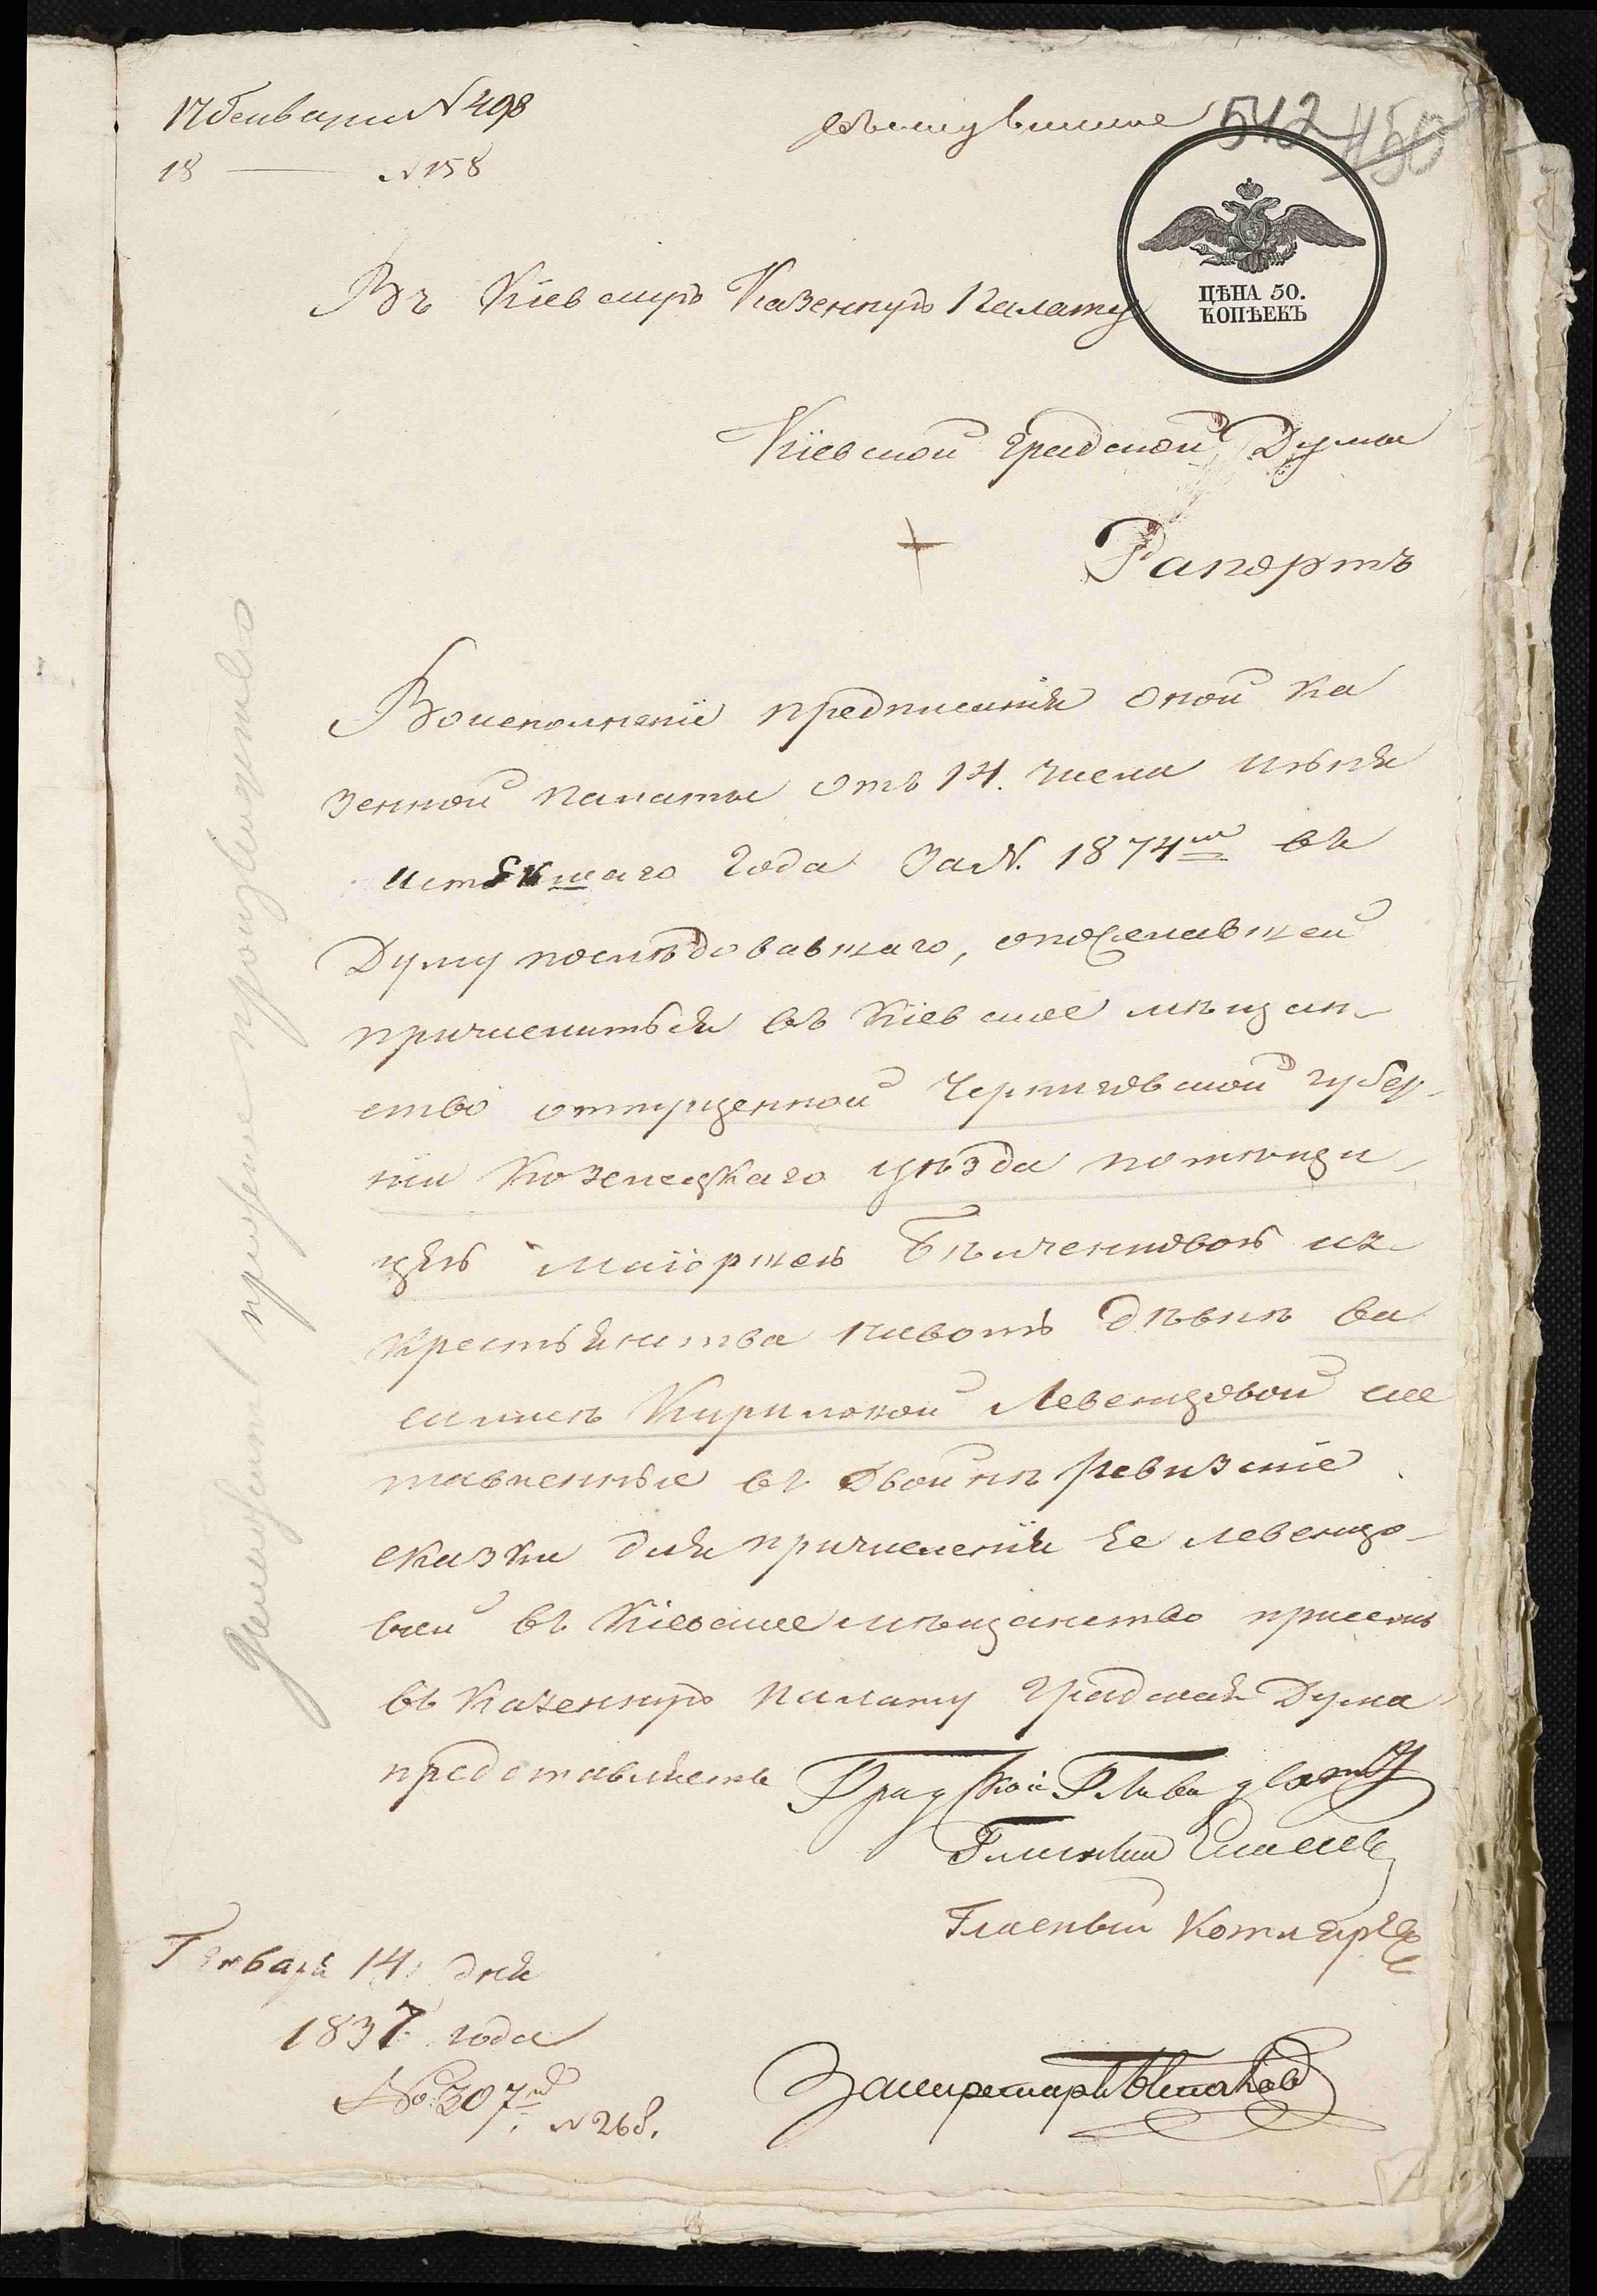 17 Генваря N 498
18 — N 158
542 450
ЦѢНА 50.
КОПѢЕКЪ
Въ Кіевскую Казенную Палату
Кіевской Градской Думы
Рапортъ
Воисполненіе предписанія оной Ка
зенной палаты отъ 14. числа Іюня
истекшаго года За N. 1874м въ
Думу последовавшаго, опожелавшей
причислиться въ Кіевское мѣщан-
ство отпущенной Черниговской губер-
ніи Козелецкаго уѣзда помѣщи-
цею Маіоршею изъ
крестьянства дѣвкѣ Ва
силисѣ Кириловой Левенцовой сос
тавленные въ двойнѣ Ревизские
сказки для причисленія Ее Левенцо-
вой въ Кіевское мѣщанство присемъ
въ Казенную Палату Градская Дума
представляетъ Градской Глава
Гласный
Гласный Котляре
Генваря 14 дня
1837. года
No 307м
N 268.